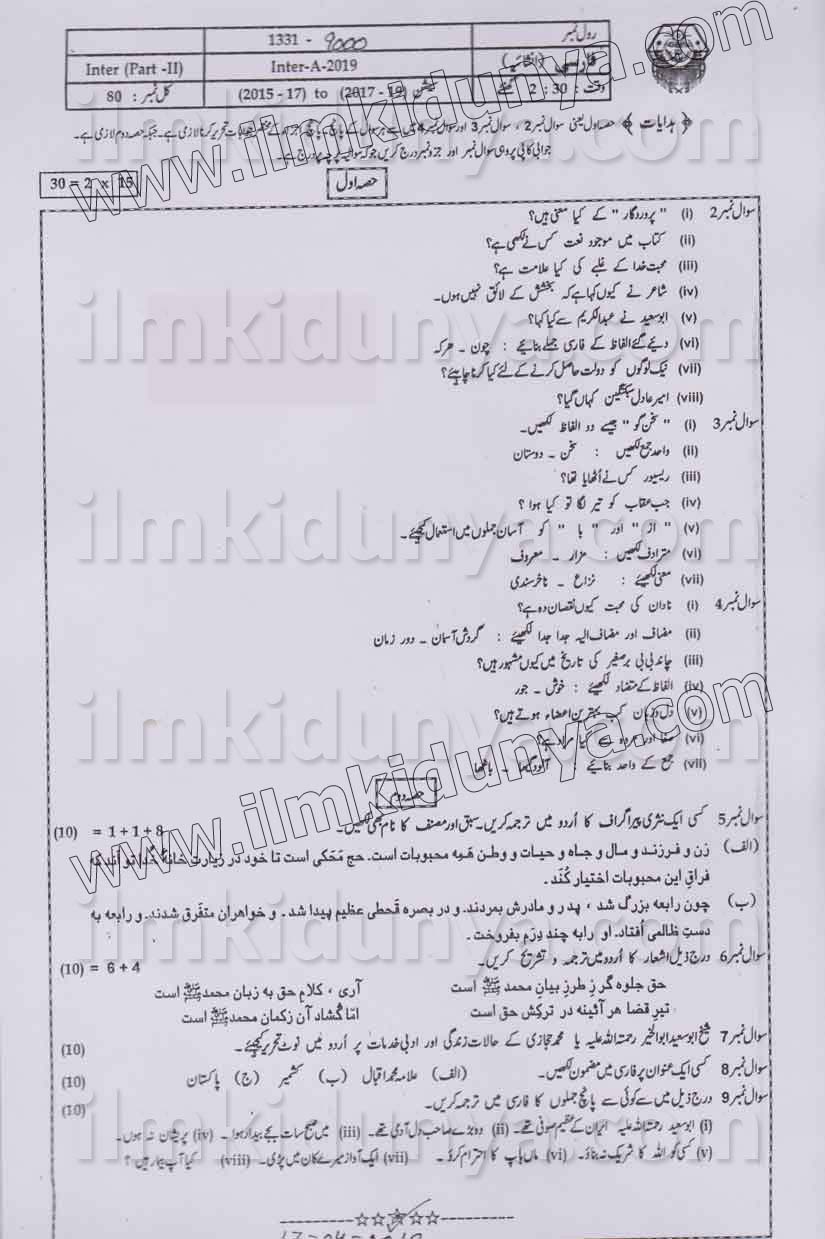 رول نمبر
1331 - 9000
فارسی (انشائیہ)
Inter-A-2019
Inter (Part -II)
وقت : 2 : 30 گھنٹے
سیشن (2015 - 17) to (2017 - 19)
کل نمبر : 80
﴿ ہدایات ﴾ حصہ اول یعنی سوال نمبر 2 ، سوال نمبر 3 اور سوال نمبر 4 میں سے ہر سوال کے پانچ پانچ اجزاء کے مختصر جوابات تحریر کرنا لازمی ہے۔ جبکہ حصہ دوم لازمی ہے۔
جوابی کاپی پر وہی سوال نمبر اور جزو نمبر درج کریں جو کہ سوالیہ پرچہ پر درج ہے۔
حصہ اول
30 = 2 x 15
سوال نمبر 2 (i) " پروردگار " کے کیا معنی ہیں؟
(ii) کتاب میں موجود نعت کس نے لکھی ہے؟
(iii) محبت خدا کے غلبے کی کیا علامت ہے؟
(iv) شاعر نے کیوں کہا ہے کہ بخشش کے لائق نہیں ہوں۔
(v) ابو سعید نے عبدالکریم سے کیا کہا؟
(vi) دیئے گئے الفاظ کے فارسی جملے بنائیے : چون ۔ ھرکہ
(vii) نیک لوگوں کو دولت حاصل کرنے کے لئے کیا کرنا چاہیئے؟
(viii) امیر عادل سبکتگین کہاں گیا؟
سوال نمبر 3 (i) " سخن گو " جیسے دو الفاظ لکھیں۔
(ii) واحد جمع لکھیں : سخن ۔ دوستان
(iii) ریسیور کس نے اُٹھایا تھا؟
(iv) جب عقاب کو تیر لگا تو کیا ہوا ؟
(v) " از " اور " با " کو آسان جملوں میں استعمال کیجیئے۔
(vi) مترادف لکھیں : مزار ۔ معروف
(vii) معنی لکھیئے : نزاع ۔ ناخرسندی
سوال نمبر 4 (i) نادان کی محبت کیوں نقصان دہ ہے؟
(ii) مضاف اور مضاف الیہ جدا جدا لکھیئے : گردشِ آسمان ۔ دورِ زمان
(iii) چاند بی بی برصغیر کی تاریخ میں کیوں مشہور ہیں؟
(iv) الفاظ کے متضاد لکھیئے : خوش ۔ جور
(v) دل و زبان کب بہترین اعضاء ہوتے ہیں؟
(vi) صفا اور مروہ سے کیا مراد ہے؟
(vii) جمع کے واحد بنائیے :
حصہ دوم
سوال نمبر 5 کسی ایک نثری پیراگراف کا اُردو میں ترجمہ کریں۔ سبق اور مصنف کا نام بھی لکھیں۔ (10) = 1 + 1 + 8
(الف) زن و فرزند و مال و جاہ و حیات و وطن هَمِه محبوبات است. حج مَحَکی است تا خود در زیارتِ خانهٔ خُدا تواَند که
فراقِ این محبوبات اختیار کُنَد.
(ب) چون رابعه بزرگ شد ، پدر و مادرش بمردند. و در بصره قَحطی عظیم پیدا شد ۔ و خواهران متفّرق شدند. و رابعه به
دستِ ظالمی اُفتاد. او رابه چند دِرَم بفروخت .
سوال نمبر 6 درج ذیل اشعار کا اُردو میں ترجمہ و تشریح کریں۔ (10) = 6 + 4
حق جلوه گر زِ طرزِ بیانِ محمدﷺ است آری ، کلامِ حق به زبان محمدﷺ است
تیرِ قضا هر آئینه در ترکِش حق است امّا کُشاد آن زکمان محمدﷺ است
سوال نمبر 7 شیخ ابو سعید ابوالخیر رحمتہ اللہ علیہ یا محمد حجازی کے حالات زندگی اور ادبی خدمات پر اُردو میں نوٹ تحریر کیجیئے۔ (10)
سوال نمبر 8 کسی ایک عنوان پر فارسی میں مضمون لکھیں۔ (الف) علامہ محمد اقبال (ب) کشمیر (ج) پاکستان (10)
سوال نمبر 9 درج ذیل میں سے کوئی سے پانچ جملوں کا فارسی میں ترجمہ کریں۔ (10)
(i) ابو سعید رحمتہ اللہ علیہ ایران کے عظیم صوفی تھے۔ (ii) وہ بڑے صاحب دل آدمی تھے۔ (iii) میں صبح سات بجے بیدار ہوا ۔ (iv) پریشان نہ ہوں۔
(v) کسی کو اللہ کا شریک نہ بناؤ۔ (vi) ماں باپ کا احترام کرو ۔ (vii) ایک آواز میرے کان میں پڑی۔ (viii) کیا آپ بیمار ہیں ؟
www.ilmkidunya.com
ilmkidunya.com
www.ilmkidunya.com